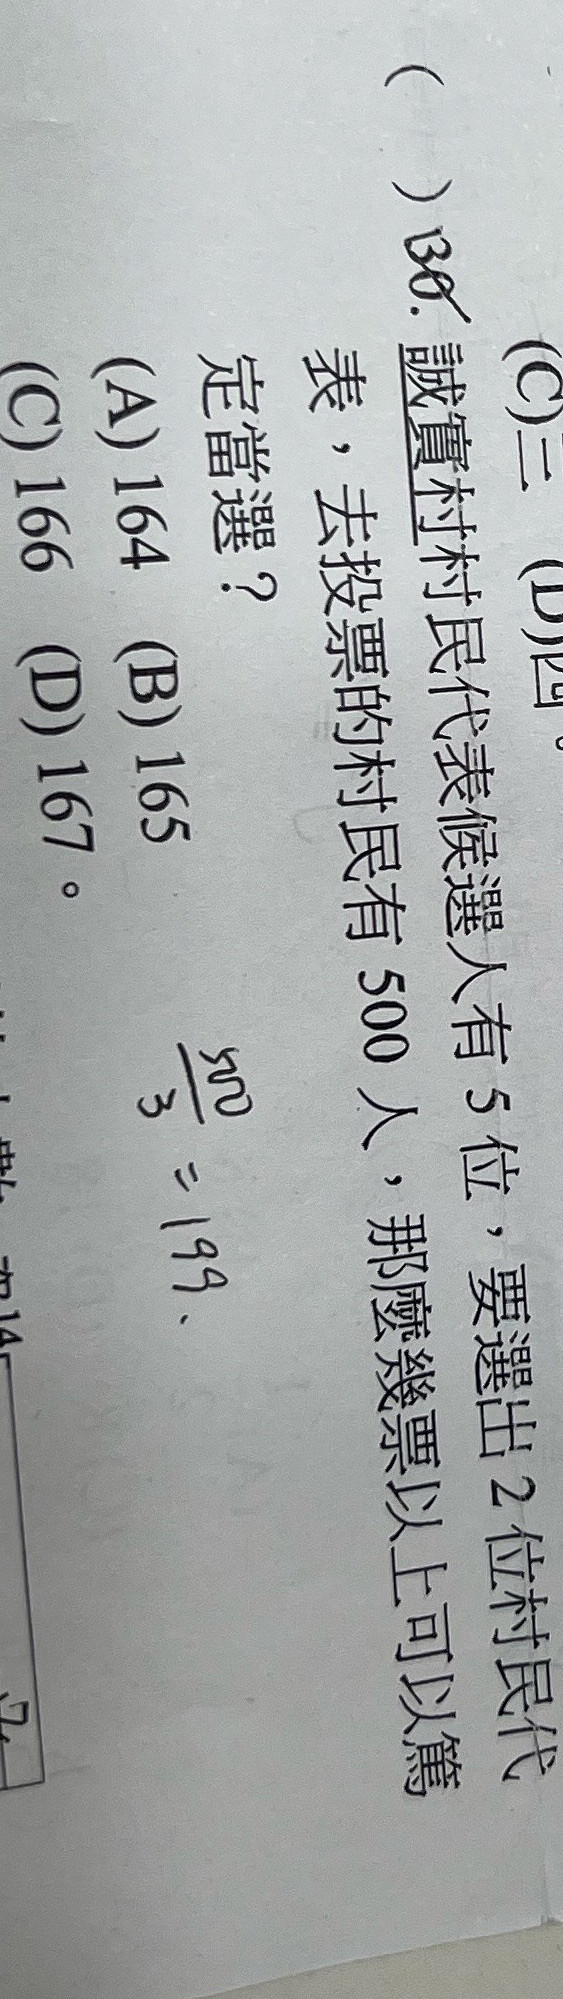 (C)三 (D)四。
( ) 130. 誠實村村民代表候選人有 5 位，要選出 2 位村民代
表，去投票的村民有 500 人，那麼幾票以上可以篤
定當選？
(A) 164 (B) 165
(C) 166 (D) 167。
500/3 = 199、